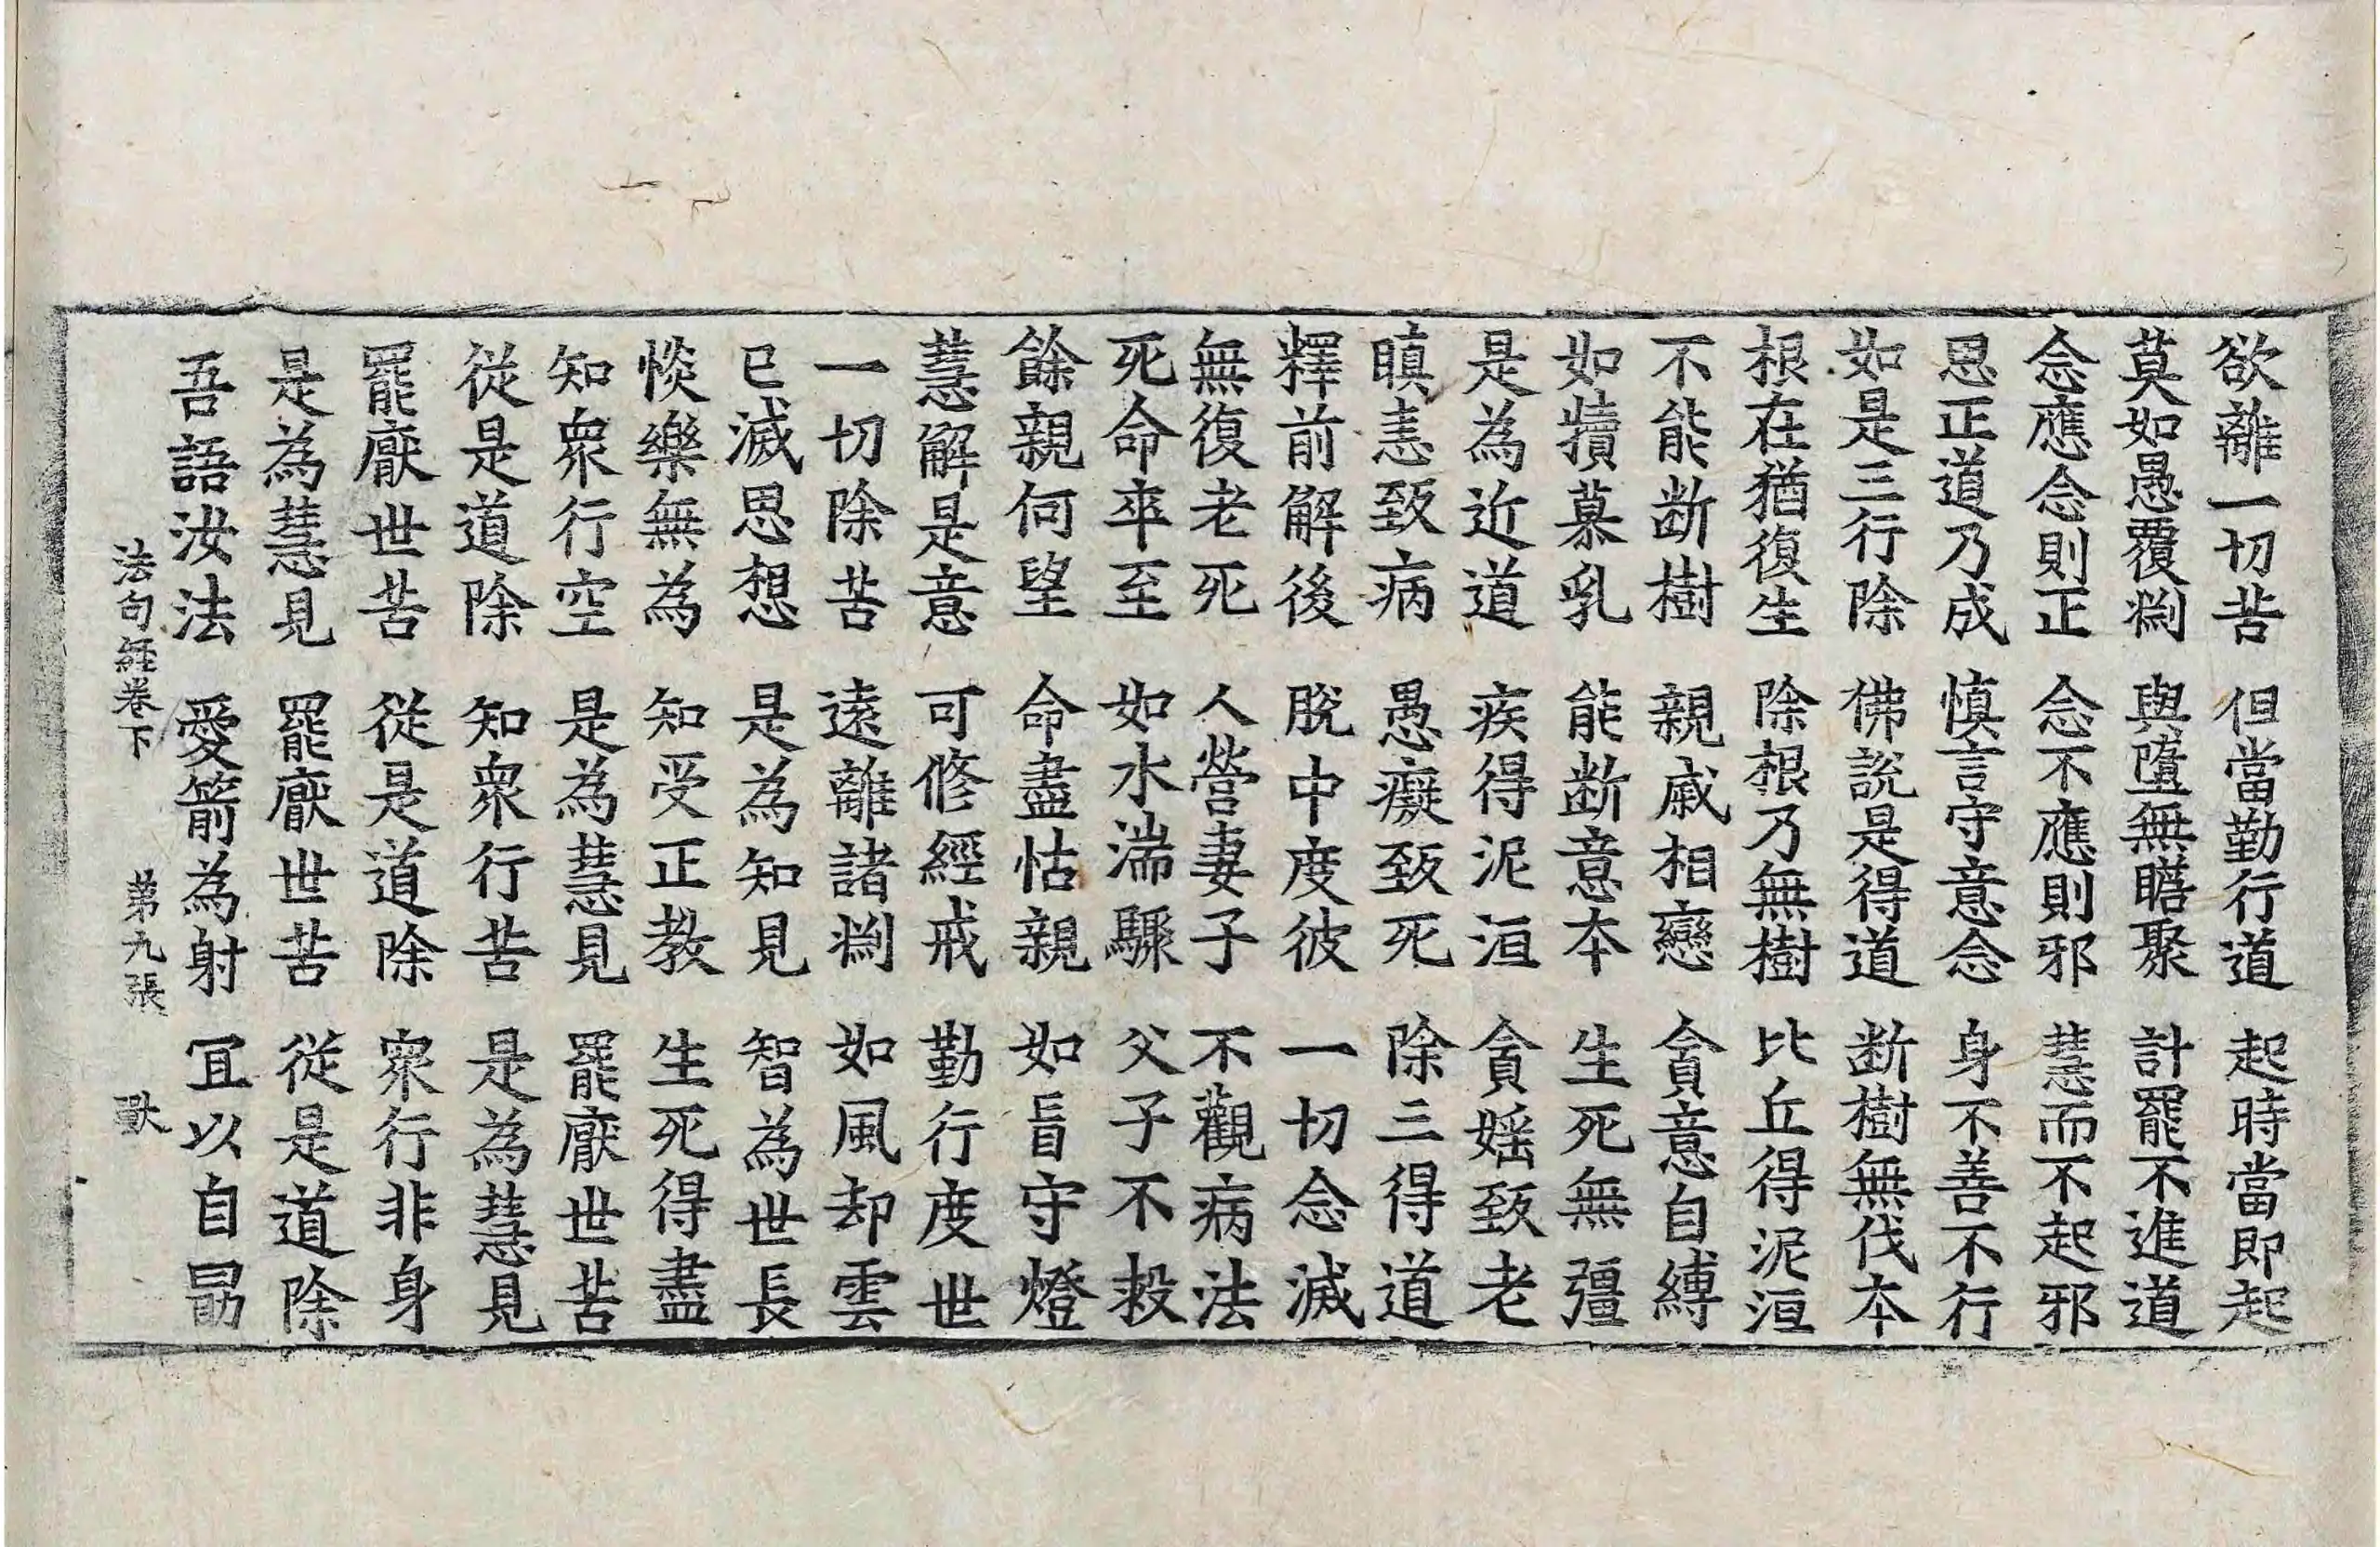 欲離一切苦 但當勤行道 起時當即起
莫如愚覆淵 與墮無瞻聚 計罷不進道
念應念則正 念不應則邪 慧而不起邪
思正道乃成 慎言守意念 身不善不行
如是三行除 佛說是得道 断樹無伐本
根在猶復生 除根乃無樹 比丘得泥洹
不能断樹 親戚相戀 貪意自縛
如犢慕乳 能断意本 生死無彊
是為近道 疾得泥洹 貪婬致老
瞋恚致病 愚癡致死 除三得道
釋前解後 脫中度彼 一切念滅
無復老死 人營妻子 不觀病法
死命卒至 如水湍驟 父子不救
餘親何望 命盡怙親 如盲守燈
慧解是意 可修經戒 勤行度世
一切除苦 遠離諸淵 如風却雲
已滅思想 是為知見 智為世長
惔樂無為 知受正教 生死得盡
知衆行空 是為慧見 罷厭世苦
從是道除 知衆行苦 是為慧見
罷厭世苦 從是道除 衆行非身
是為慧見 罷厭世苦 從是道除
吾語汝法 愛箭為射 冝以自勗
法句經卷下 第九張